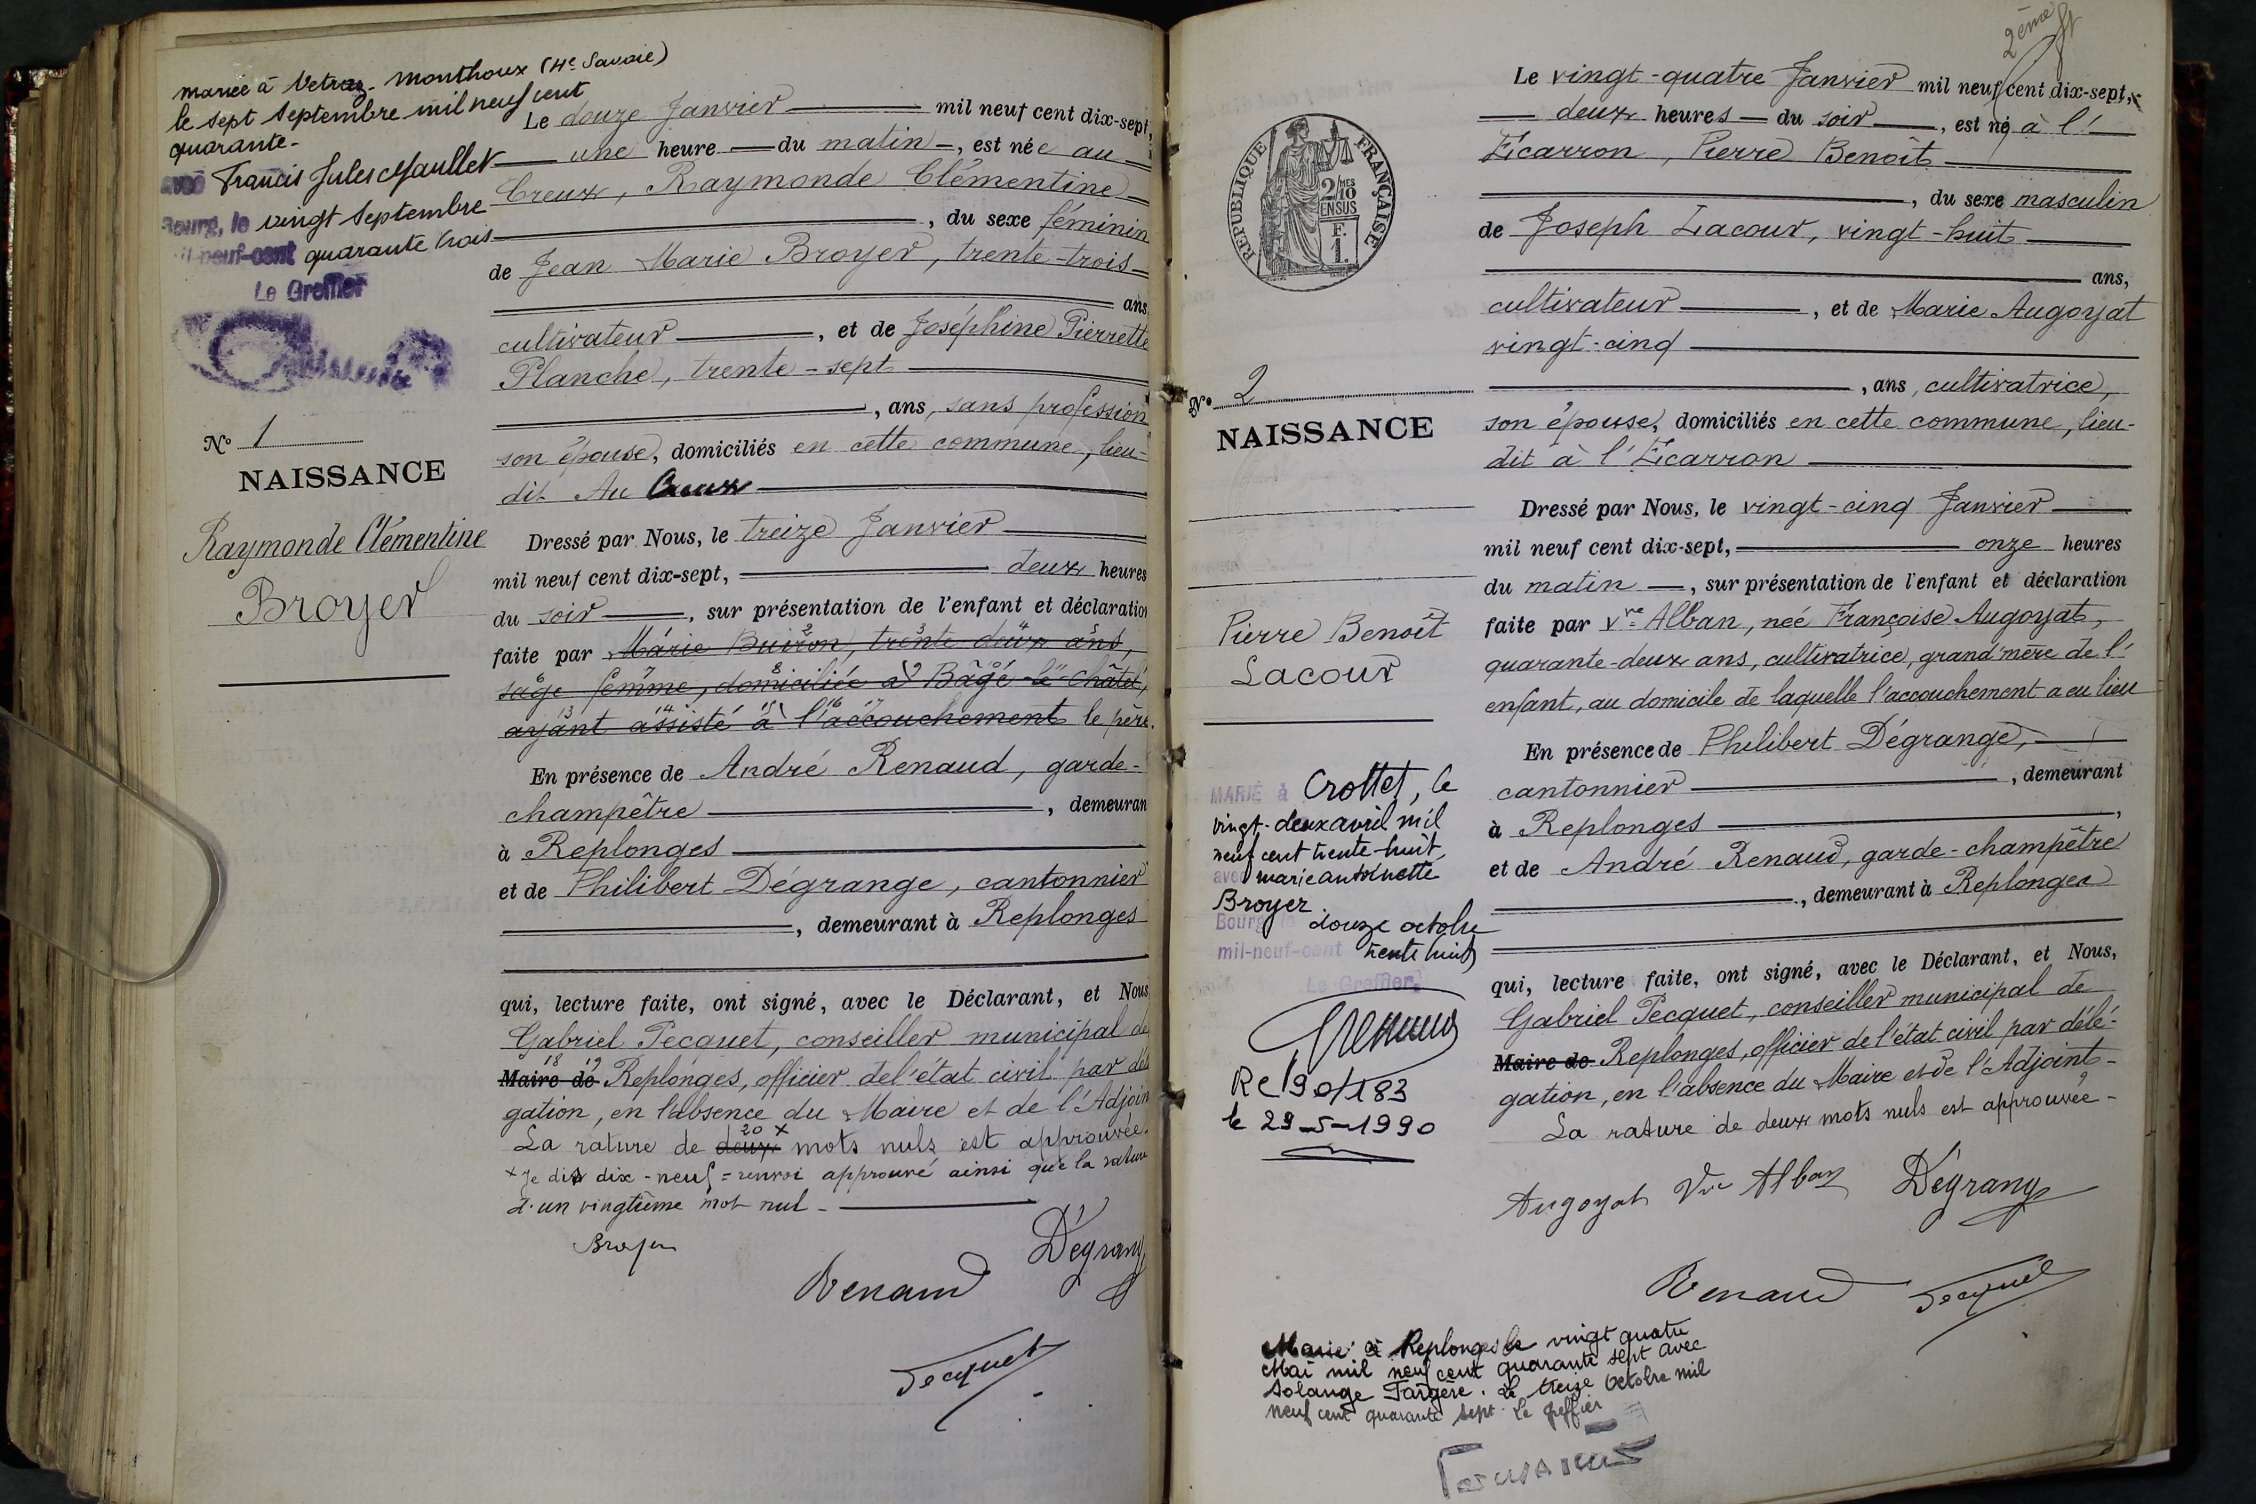 mariée à Vetraz-Monthoux (Hte Savoie)
le sept Septembre mil neuf cent
quarante-
avec Francis Jules Maullet
Bourg, le vingt Septembre
mil-neuf-cent quarante trois
Le Greffier
N° 1
NAISSANCE
Raymonde Clémentine
Broyer
Le douze Janvier mil neuf cent dix-sept,
une heure du matin, est née au
Creux, Raymonde Clémentine
, du sexe féminin
de Jean Marie Broyer, trente-trois
ans
cultivateur, et de Joséphine Pierrette
Planche, trente-sept
, ans, sans profession
son épouse, domiciliés en cette commune, lieu-
dit Au Creux
Dressé par Nous, le treize Janvier
mil neuf cent dix-sept, deux heures
du soir, sur présentation de l'enfant et déclaration
faite par Marie Buiron, trente deux ans,
sage femme, domiciliée à Bâgé-le-Châtel,
ayant assisté à l'accouchement le père.
En présence de André Renaud, garde-
champêtre, demeuran
à Replonges
et de Philibert Dégrange, cantonnier
, demeurant à Replonges
qui, lecture faite, ont signé, avec le Déclarant, et Nous
Gabriel Pecquet, conseiller municipal de
Maire de Replonges, officier de l'état civil par délé
gation, en l'absence du Maire et de l'Adjoin
La rature de deux 20 x mots nuls est approuvée.
x Je dis dix-neuf = renvoi approuvé ainsi que la rature
d'un vingtième mot nul -
Broyer
Renaud
Dégrang
Pecquet
2ème
REPUBLIQUE FRANÇAISE
2/10 MES
EN SUS
F.
1.
N° 2
NAISSANCE
Pierre Benoît
Lacour
MARIÉ à Crottet, le
vingt-deux avril mil
neuf cent trente-huit
avec marie antoinette
Broyer
Bourg douze octobre
mil-neuf-cent trente huit
Le Greffier,
Rc 190/183
le 29-5-1990
Le vingt-quatre Janvier mil neuf cent dix-sept,
deux heures du soir, est né à l'
Ecarron, Pierre Benoît
, du sexe masculin
de Joseph Lacour, vingt-huit
ans,
cultivateur, et de Marie Augoyat
vingt-cinq
, ans, cultivatrice,
son épouse, domiciliés en cette commune, lieu-
dit à l'Ecarron
Dressé par Nous, le vingt-cinq Janvier
mil neuf cent dix-sept, onze heures
du matin, sur présentation de l'enfant et déclaration
faite par Vve Alban, née Françoise Augoyat,
quarante-deux ans, cultivatrice, grand'mère de l'
enfant, au domicile de laquelle l'accouchement a eu lieu
En présence de Philibert Dégrange,
cantonnier, demeurant
à Replonges,
et de André Renaud, garde-champêtre
, demeurant à Replonges
qui, lecture faite, ont signé, avec le Déclarant, et Nous,
Gabriel Pecquet, conseiller municipal de
Maire de Replonges, officier de l'état civil par délé-
gation, en l'absence du Maire et de l'Adjoint-
La rature de deux mots nuls est approuvée-
Augoyat Vve Alban Dégrang
Renaud Pecquet
Marié à Replonges le vingt quatre
Mai mil neuf cent quarante sept avec
Solange Fargère. Le treize Octobre mil
neuf cent quarante sept. Le greffier